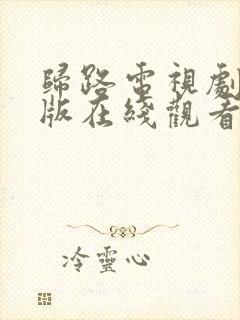 歸路電視劇
版在綫觀看
冷靈心